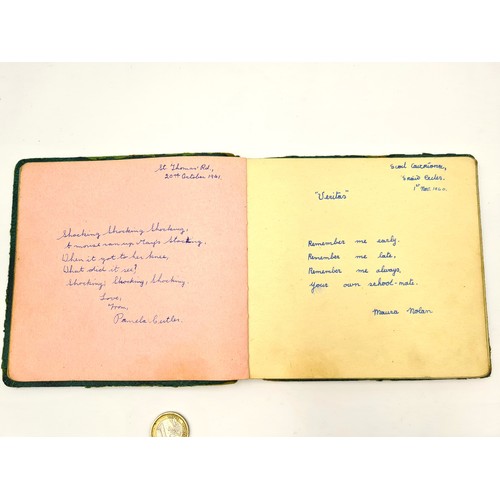 St Thomas Rd,
20th October 1941.
Shocking Shocking Shocking,
A mouse ran up May's Stocking,
When it got to her knee,
What did it see?
Shocking, Shocking, Shocking.
Love,
From,
Pamela Cutler.
Scoil
1st Nov.
"Veritas"
Remember me early.
Remember me late,
Remember me always,
Your own school-mate.
Maura Nolan